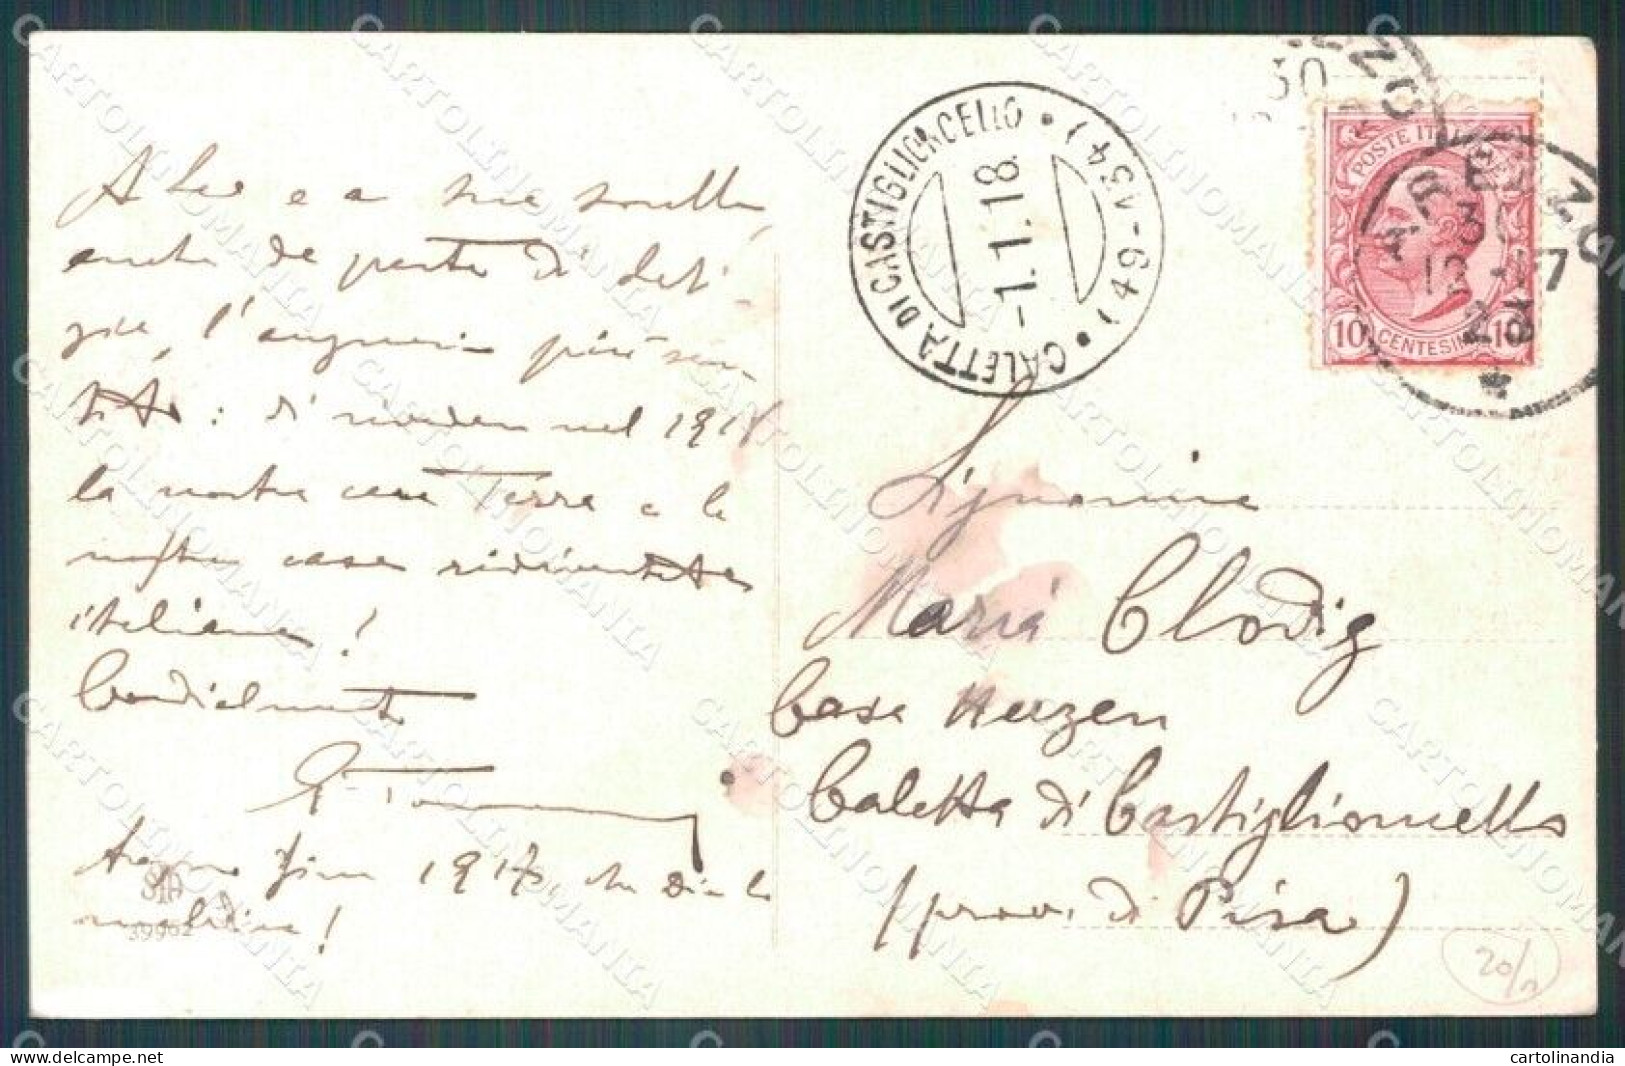 A Lei e a sua sorella,
anche da parte di Leti-
zia, l'augurio più sen
tito: di riveder nel 1918
la nostra cara Terra e le
nostre case ridiventate
italiane!
Cordialmente
fine 1917 che Dio lo
maledica!
39902
CALETTA DI CASTIGLIONCELLO • (49-134) •
-1.1.18
AREZZO
POSTE ITALIANE
10 CENTESIMI 10
Signorina
Maria Clodig
Casa Herzen
Caletta di Castiglioncello
(prov. di Pisa)
20/
CARTOLINOMANIA
cartolinandia